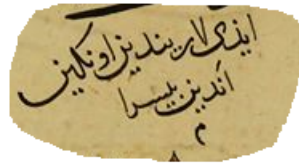 ایندی لار بندین اونکین
اندین بیسرا
م